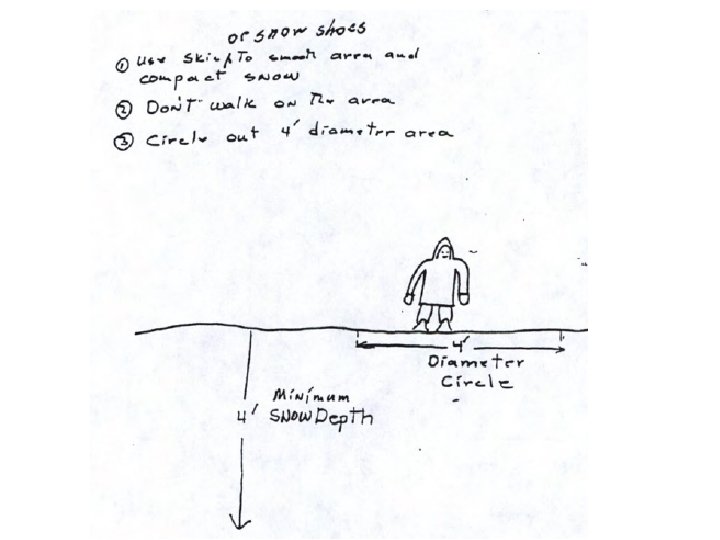 or snow shoes
① Use Skis To smash area and
compact snow
② Don't walk on The area
③ Circle out 4' diameter area
4'
Diameter
Circle
Minimum
4' Snow Depth